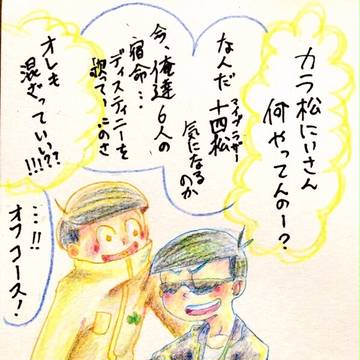 カラ松にいさん
何やってんのー?
なんだ十四松
マイブラザー
気になるのか
今、俺達6人の
宿命…
ディスティニーを
オレも
混ざっていい??
!!!
…!!
オフコース!